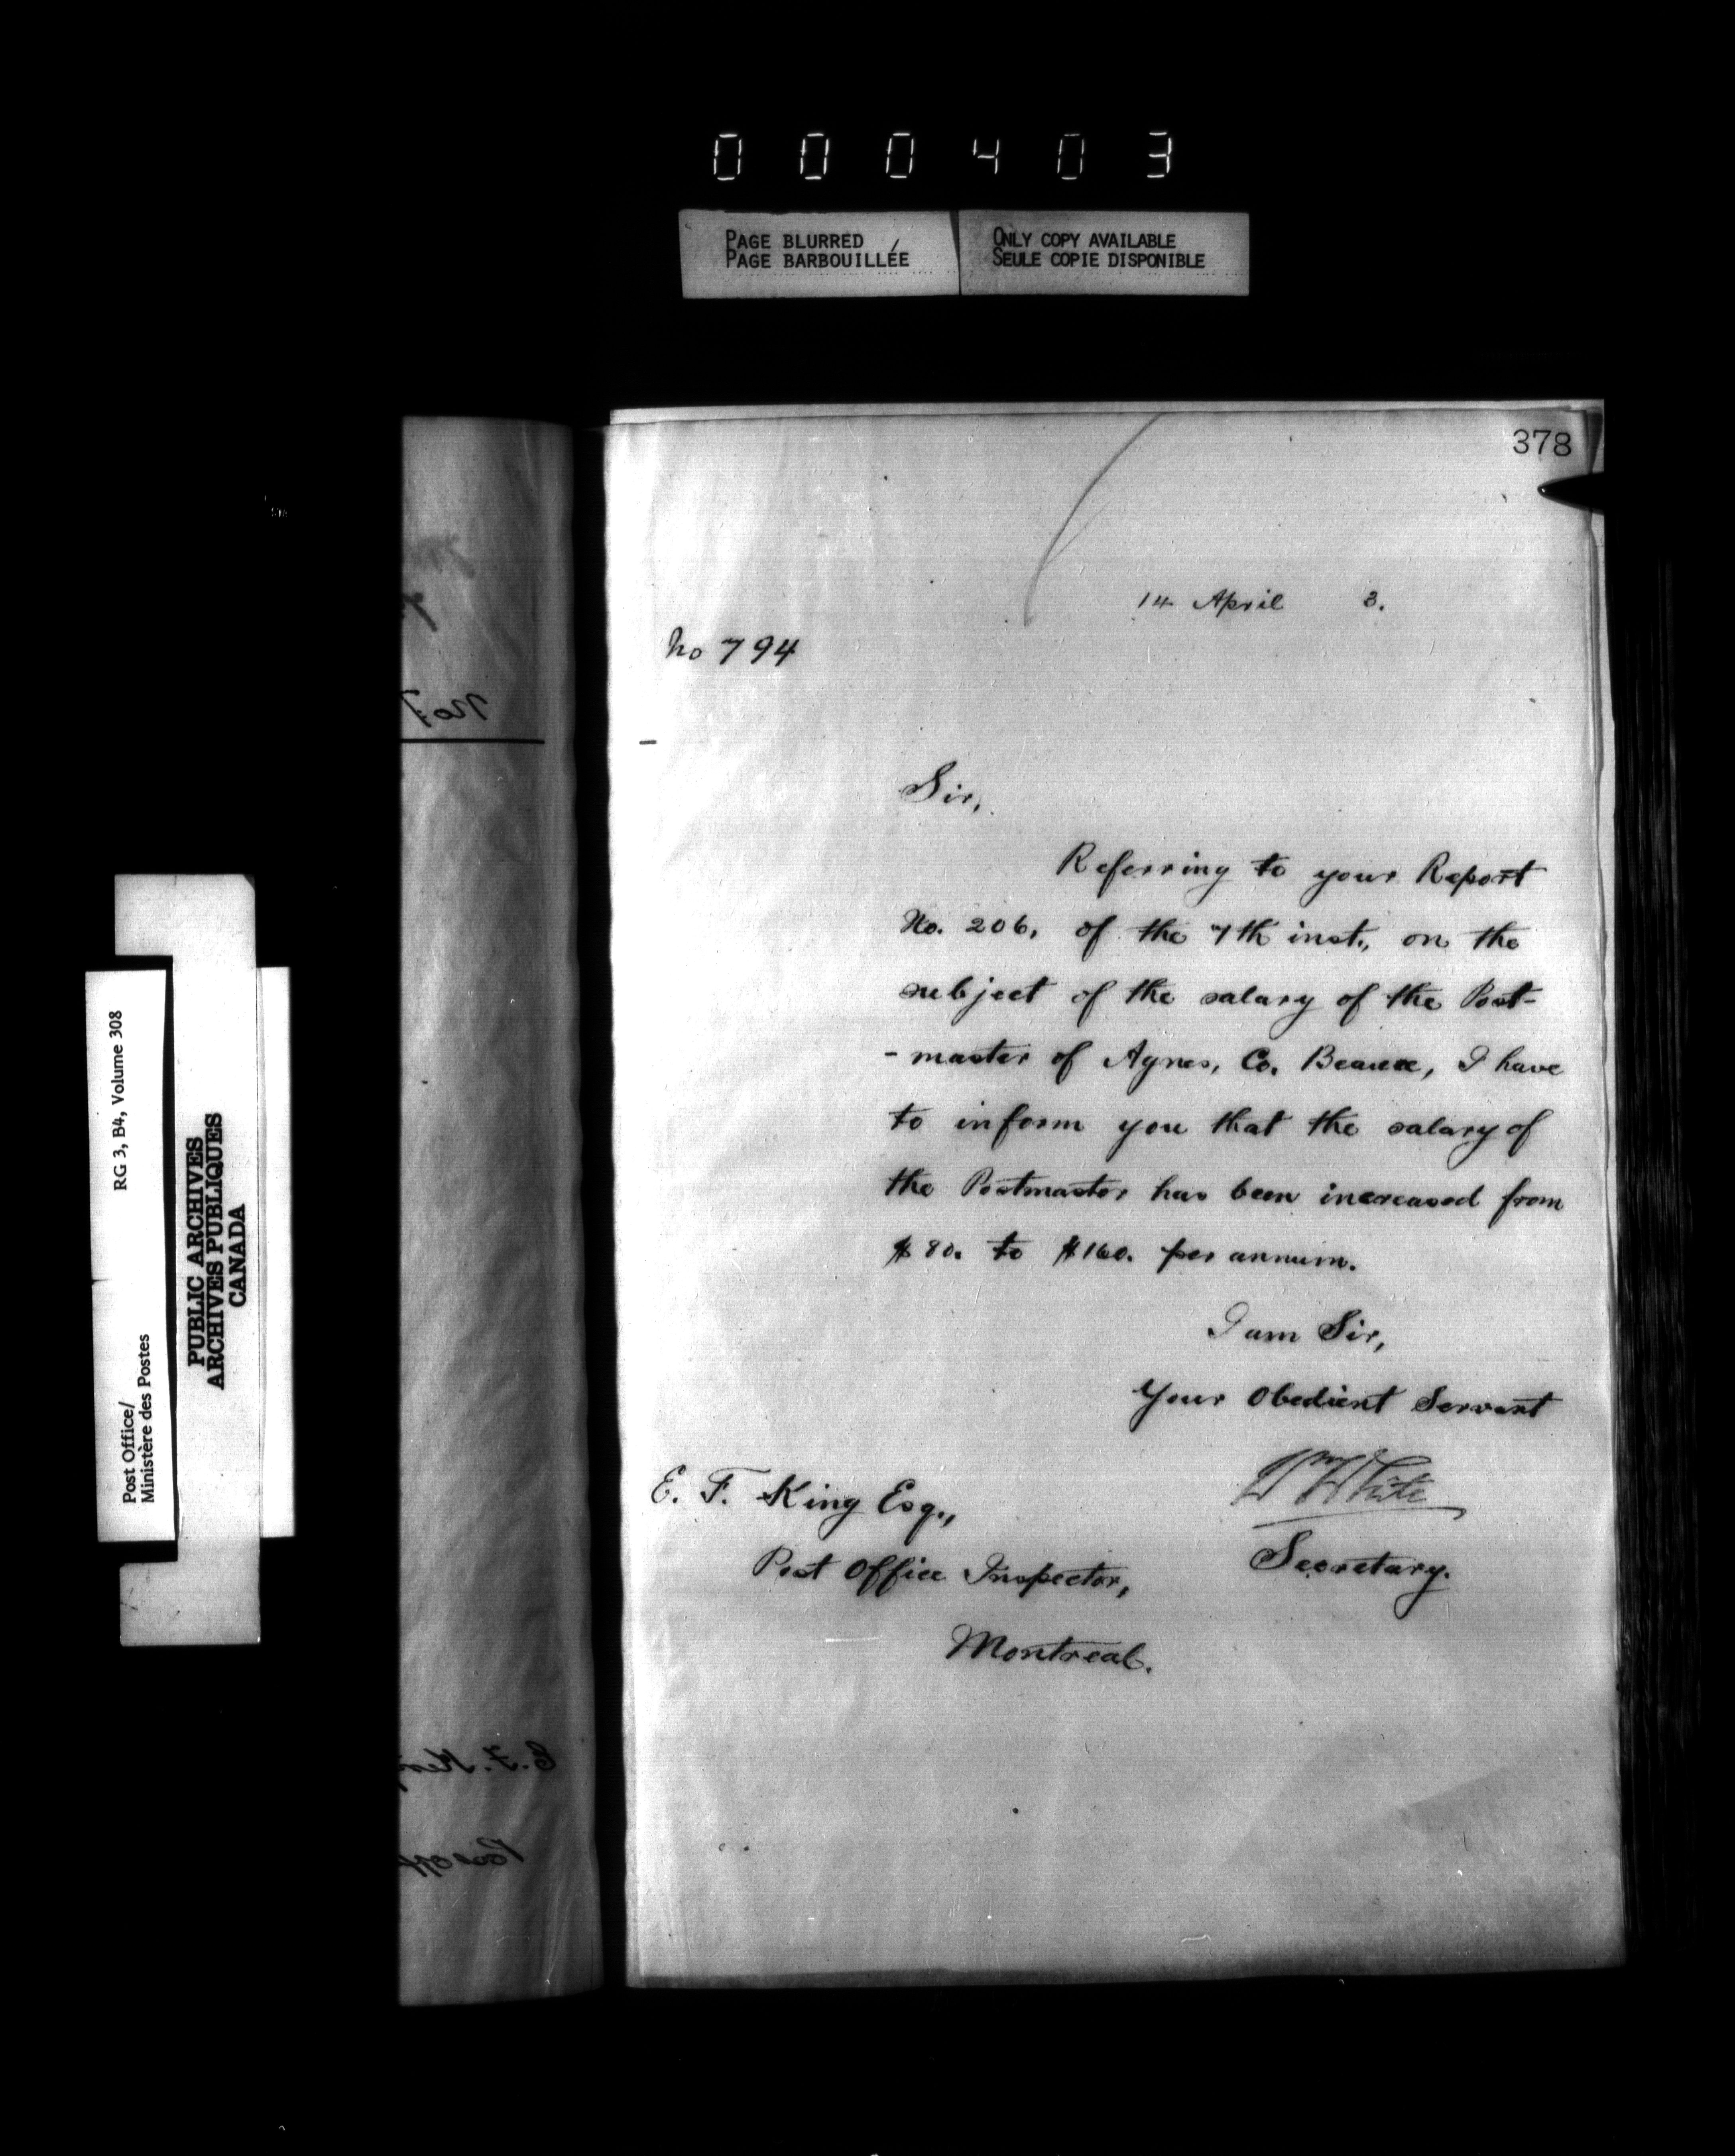 000403
PAGE BLURRED
PAGE BARBOUILLÉE
ONLY COPY AVAILABLE
SEULE COPIE DISPONIBLE
378
14 April 3.
No 794
Sir,
Referring to your Report
No. 206, of the 7th inst., on the
subject of the salary of the Post-
- master of Agnes, Co. Beauce, I have
to inform you that the salary of
the Postmaster has been increased from
$80. to $160. per annum.
I am Sir,
Your Obedient Servant
Wm White
Secretary.
E. F. King Esq.,
Post Office Inspector,
Montreal.
RG 3, B4, Volume 308
Post Office/
Ministère des Postes
PUBLIC ARCHIVES
ARCHIVES PUBLIQUES
CANADA